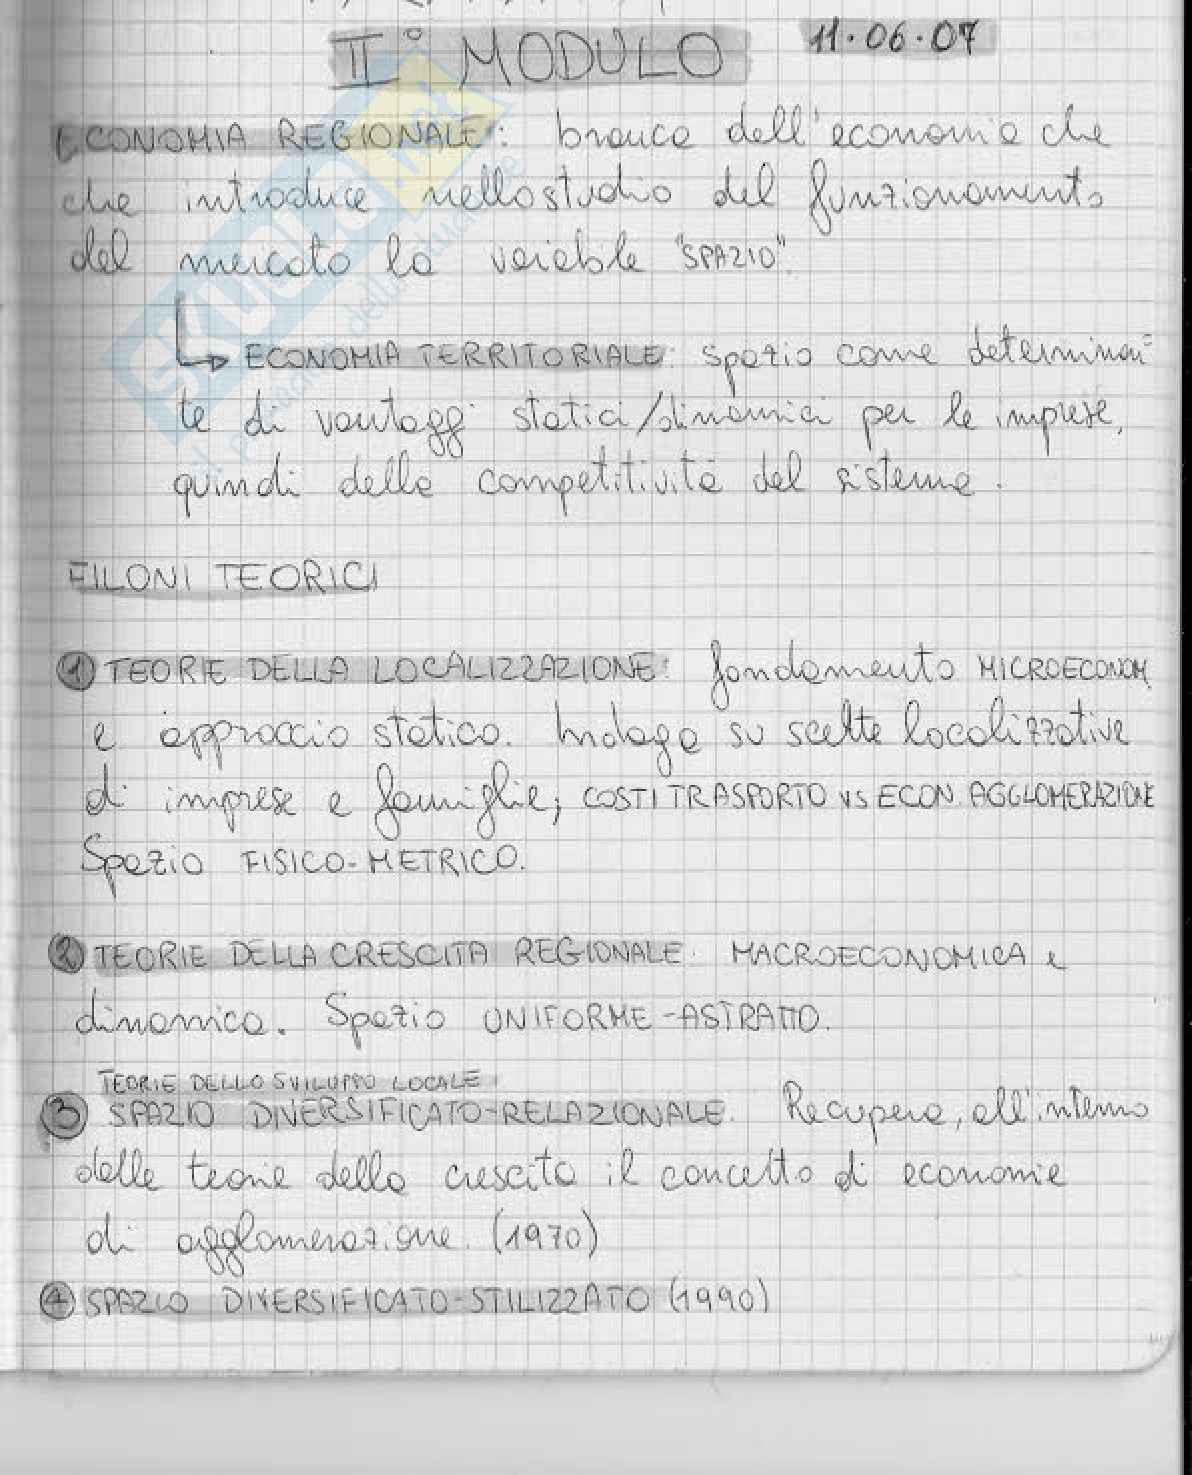 II° MODULO 11.06.07
ECONOMIA REGIONALE: branca dell'economia che
che introduce nello studio del funzionamento
del mercato la variabile "SPAZIO".
ECONOMIA TERRITORIALE: spazio come determinan=
te di vantaggi statici/dinamici per le imprese,
quindi della competitività del sistema.
FILONI TEORICI
1 TEORIE DELLA LOCALIZZAZIONE: fondamento MICROECONOM.
e approccio statico. Indaga su scelte localizzative
di imprese e famiglie; COSTI TRASPORTO VS ECON. AGGLOMERAZIONE
Spazio FISICO-METRICO.
2 TEORIE DELLA CRESCITA REGIONALE. MACROECONOMICA e
dinamica. Spazio UNIFORME-ASTRATTO.
TEORIE DELLO SVILUPPO LOCALE
3 SPAZIO DIVERSIFICATO-RELAZIONALE. Recupera, all'interno
delle teorie della crescita il concetto di economie
di agglomerazione. (1970)
4 SPAZIO DIVERSIFICATO-STILIZZATO (1990)
SKUOLA.net